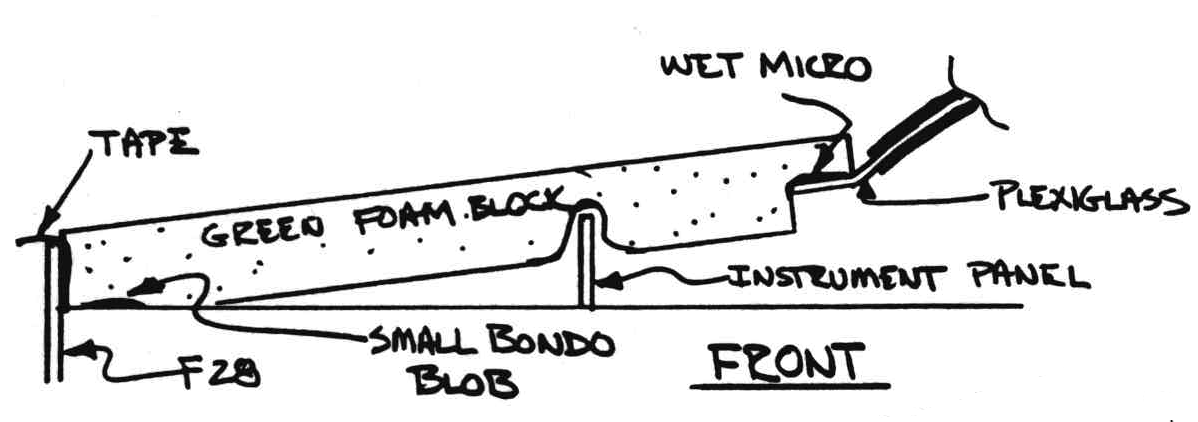 WET MICRO
TAPE
PLEXIGLASS
GREEN FOAM BLOCK
INSTRUMENT PANEL
SMALL BONDO
BLOB
F28
FRONT